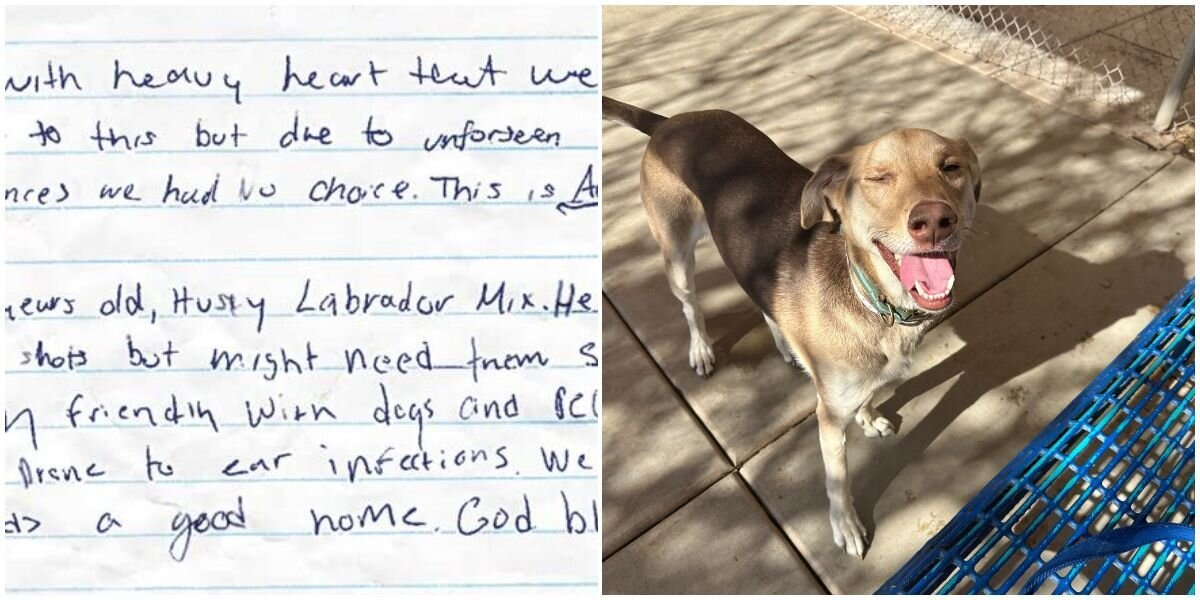 with heavy heart that we
to this but due to unforseen
nces we had no choice. This is A
ears old, Husky Labrador Mix. He
shots but might need them s
friendly with dogs and
Prone to ear infections. We
a good home. God bl